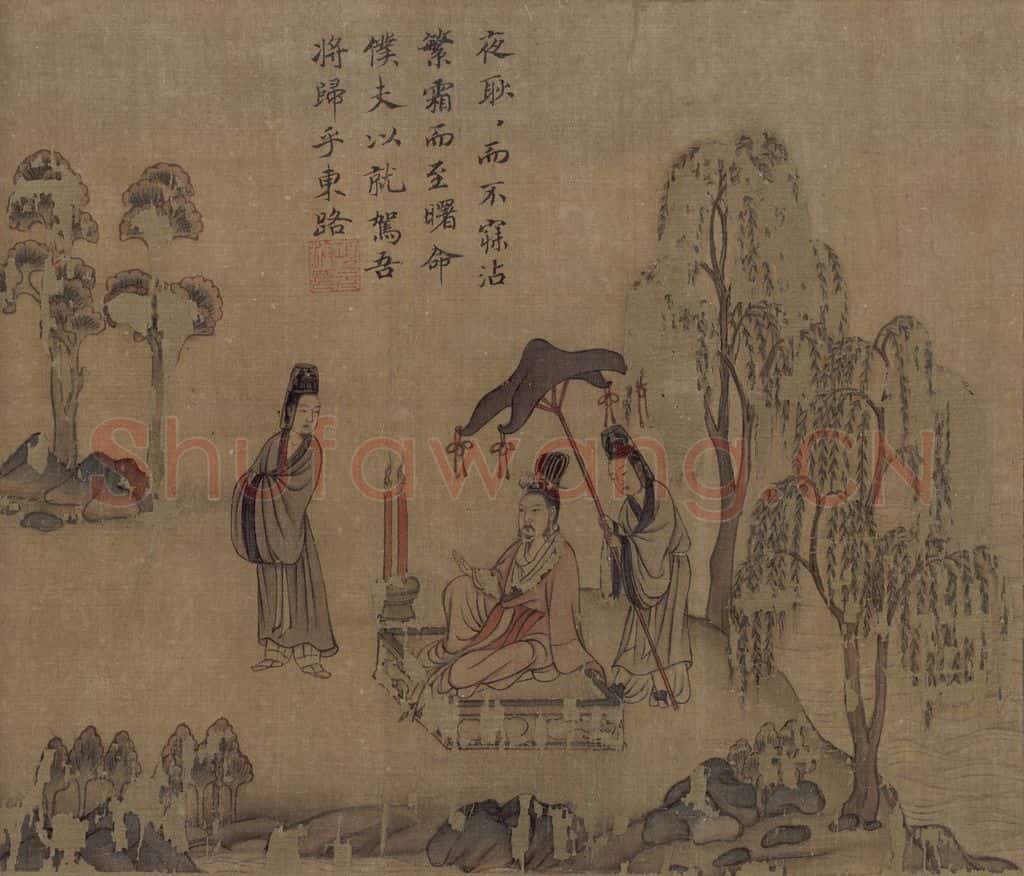 夜耿、而不寐沾
繁霜而至曙命
僕夫以就駕吾
將歸乎東路
Shufawang.CN